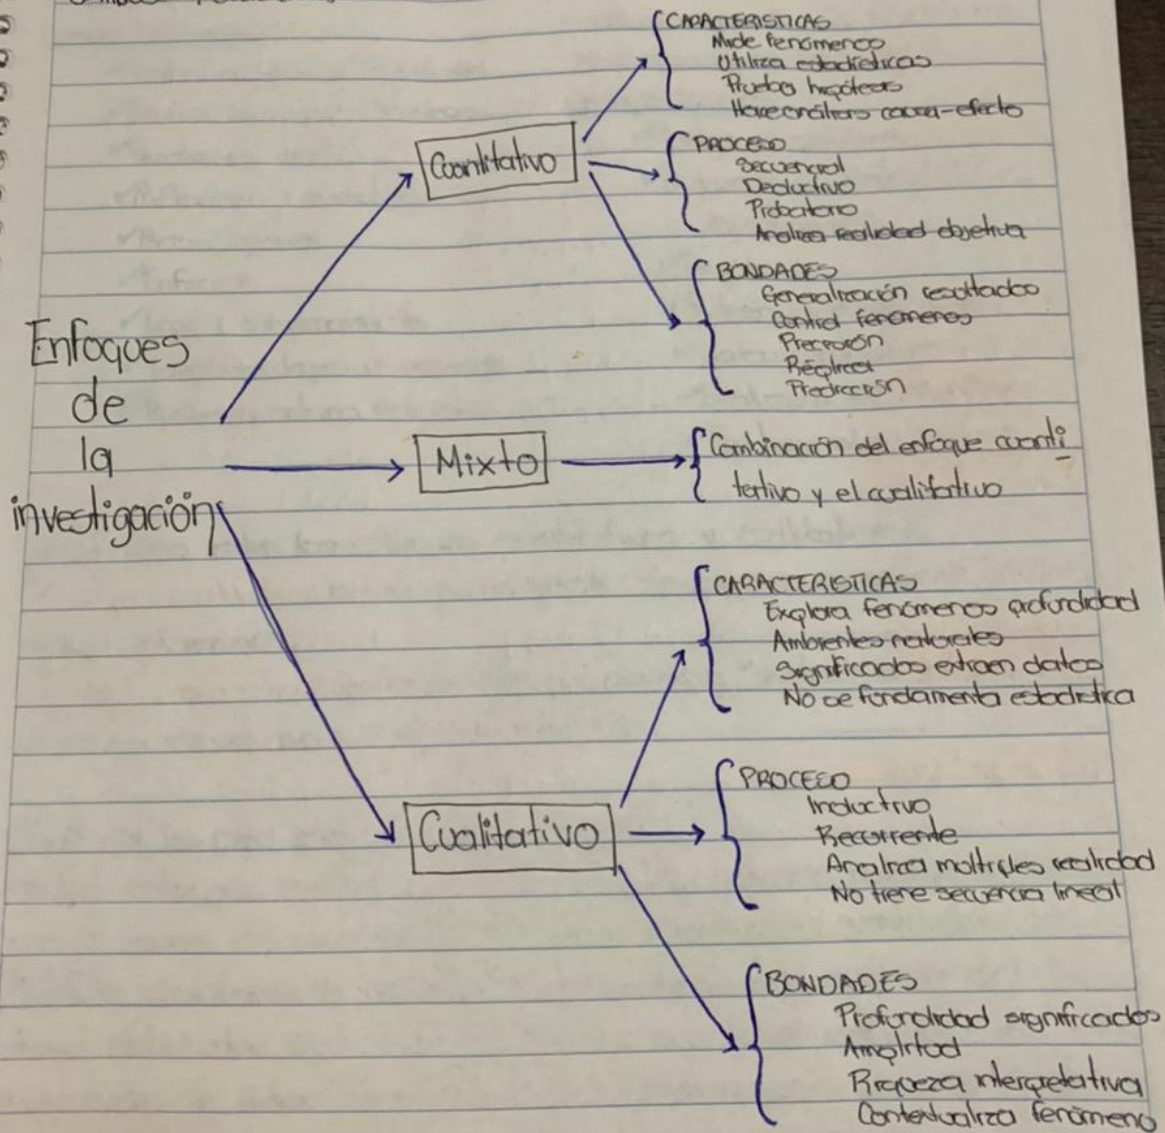 CARACTERISTICAS
Mide fenómenos
Utiliza estadísticas
Prueba hipótesis
Hace análisis causa-efecto
Cuantitativo
PROCESO
Secuencial
Deductivo
Probatorio
Analiza realidad objetiva
BONDADES
Generalización resultados
Control fenómenos
Precisión
Réplica
Predicción
Enfoques
de
la
investigación
Mixto
Combinación del enfoque cuanti
tativo y el cualitativo
CARACTERISTICAS
Explora fenómenos profundidad
Ambientes naturales
Significados extraen datos
No se fundamenta estadística
Cualitativo
PROCESO
Inductivo
Recurrente
Analiza múltiples realidad
No tiene secuencia lineal
BONDADES
Profundidad significados
Amplitud
Riqueza interpretativa
Contextualiza fenómeno